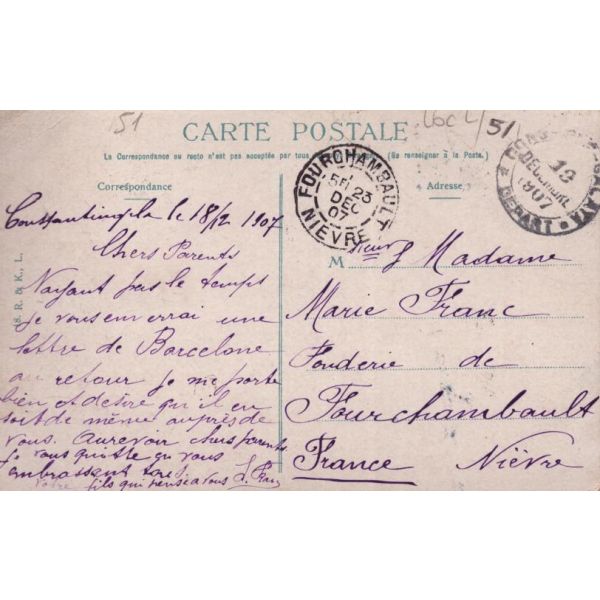 51
CARTE POSTALE
51
La Correspondance au recto n'est pas acceptée par tous (Se renseigner à la Poste.)
Correspondance
Adresse
FOURCHAMBAULT
5H 23
DEC
07
NIÈVRE
CONS GALATA
19
DECEMBRE
1907
DEPART
S. R. & K., L.
Constantinople le 18/12 1907
Chers Parents
N'ayant pas le temps
je vous enverrai une
lettre de Barcelone
au retour je me porte
bien et désire qu'il en
soit de même auprès de
vous. aurevoir chers parents
je vous quitte en vous
embrassant tous.
Votre fils qui pense à vous
M Madame
Marie Franc
Fonderie de
Fourchambault
France Nièvre